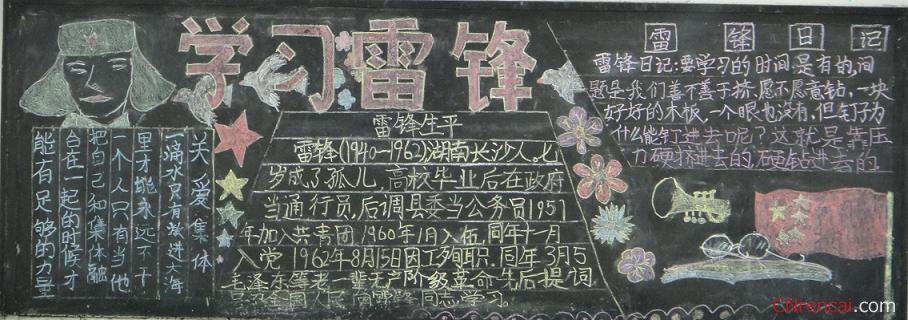 学习雷锋
关爱集体
一滴水只有放进大海
里才能永远不干
一个人只有当他
把自己和集体融
合在一起的时候才
能有足够的力量
雷锋生平
雷锋(1940-1962)湖南长沙人,七
岁成了孤儿,高校毕业后在政府
当通行员,后调县委当公务员1957
年加入共青团,1960年1月入伍,同年十一月
入党 1962年8月15日因工殉职,同年3月5
毛泽东等老一辈无产阶级革命先后提词
同志学习.
雷锋日记
雷锋日记:要学习的时间是有的,问
题是我们善不善于挤,愿不愿意钻,一块
好好的木板,一个眼也没有,但钉子为
什么能钉进去呢?这就是靠压
力硬挤进去的,硬钻进去的
CNrencai.com